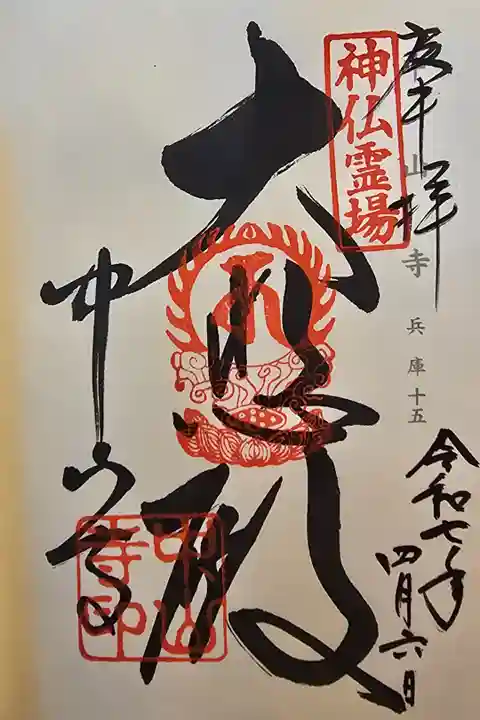 奉拝
神仏霊場
中山寺
兵庫十五
令和七年
四月六日
大悲殿
中山寺
中山寺印